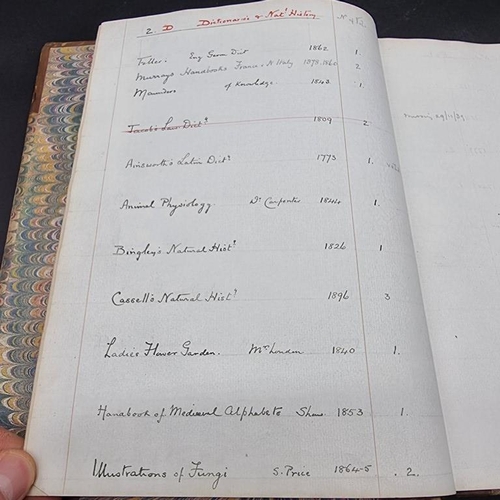 2 D Dictionaries & Nat' History
Eng Germ Dict 1862 1.
Murray's Handbooks France & N Italy 1873, 1860 2
Maunders of Knowledge 1843 1.
Jacob's Law Dict' 1809 2
Ainsworth's Latin Dict' 1773 1.
Animal Physiology. Dr Carpenter 1844 1.
Bingley's Natural Hist' 1826 1
Cassell's Natural Hist' 1896 3
Ladies Flower Garden. Mrs Loudon 1840 1.
Handbook of Mediaeval Alphabets Shaw 1853 1.
Illustrations of Fungi S. Price 1864-5 .2.